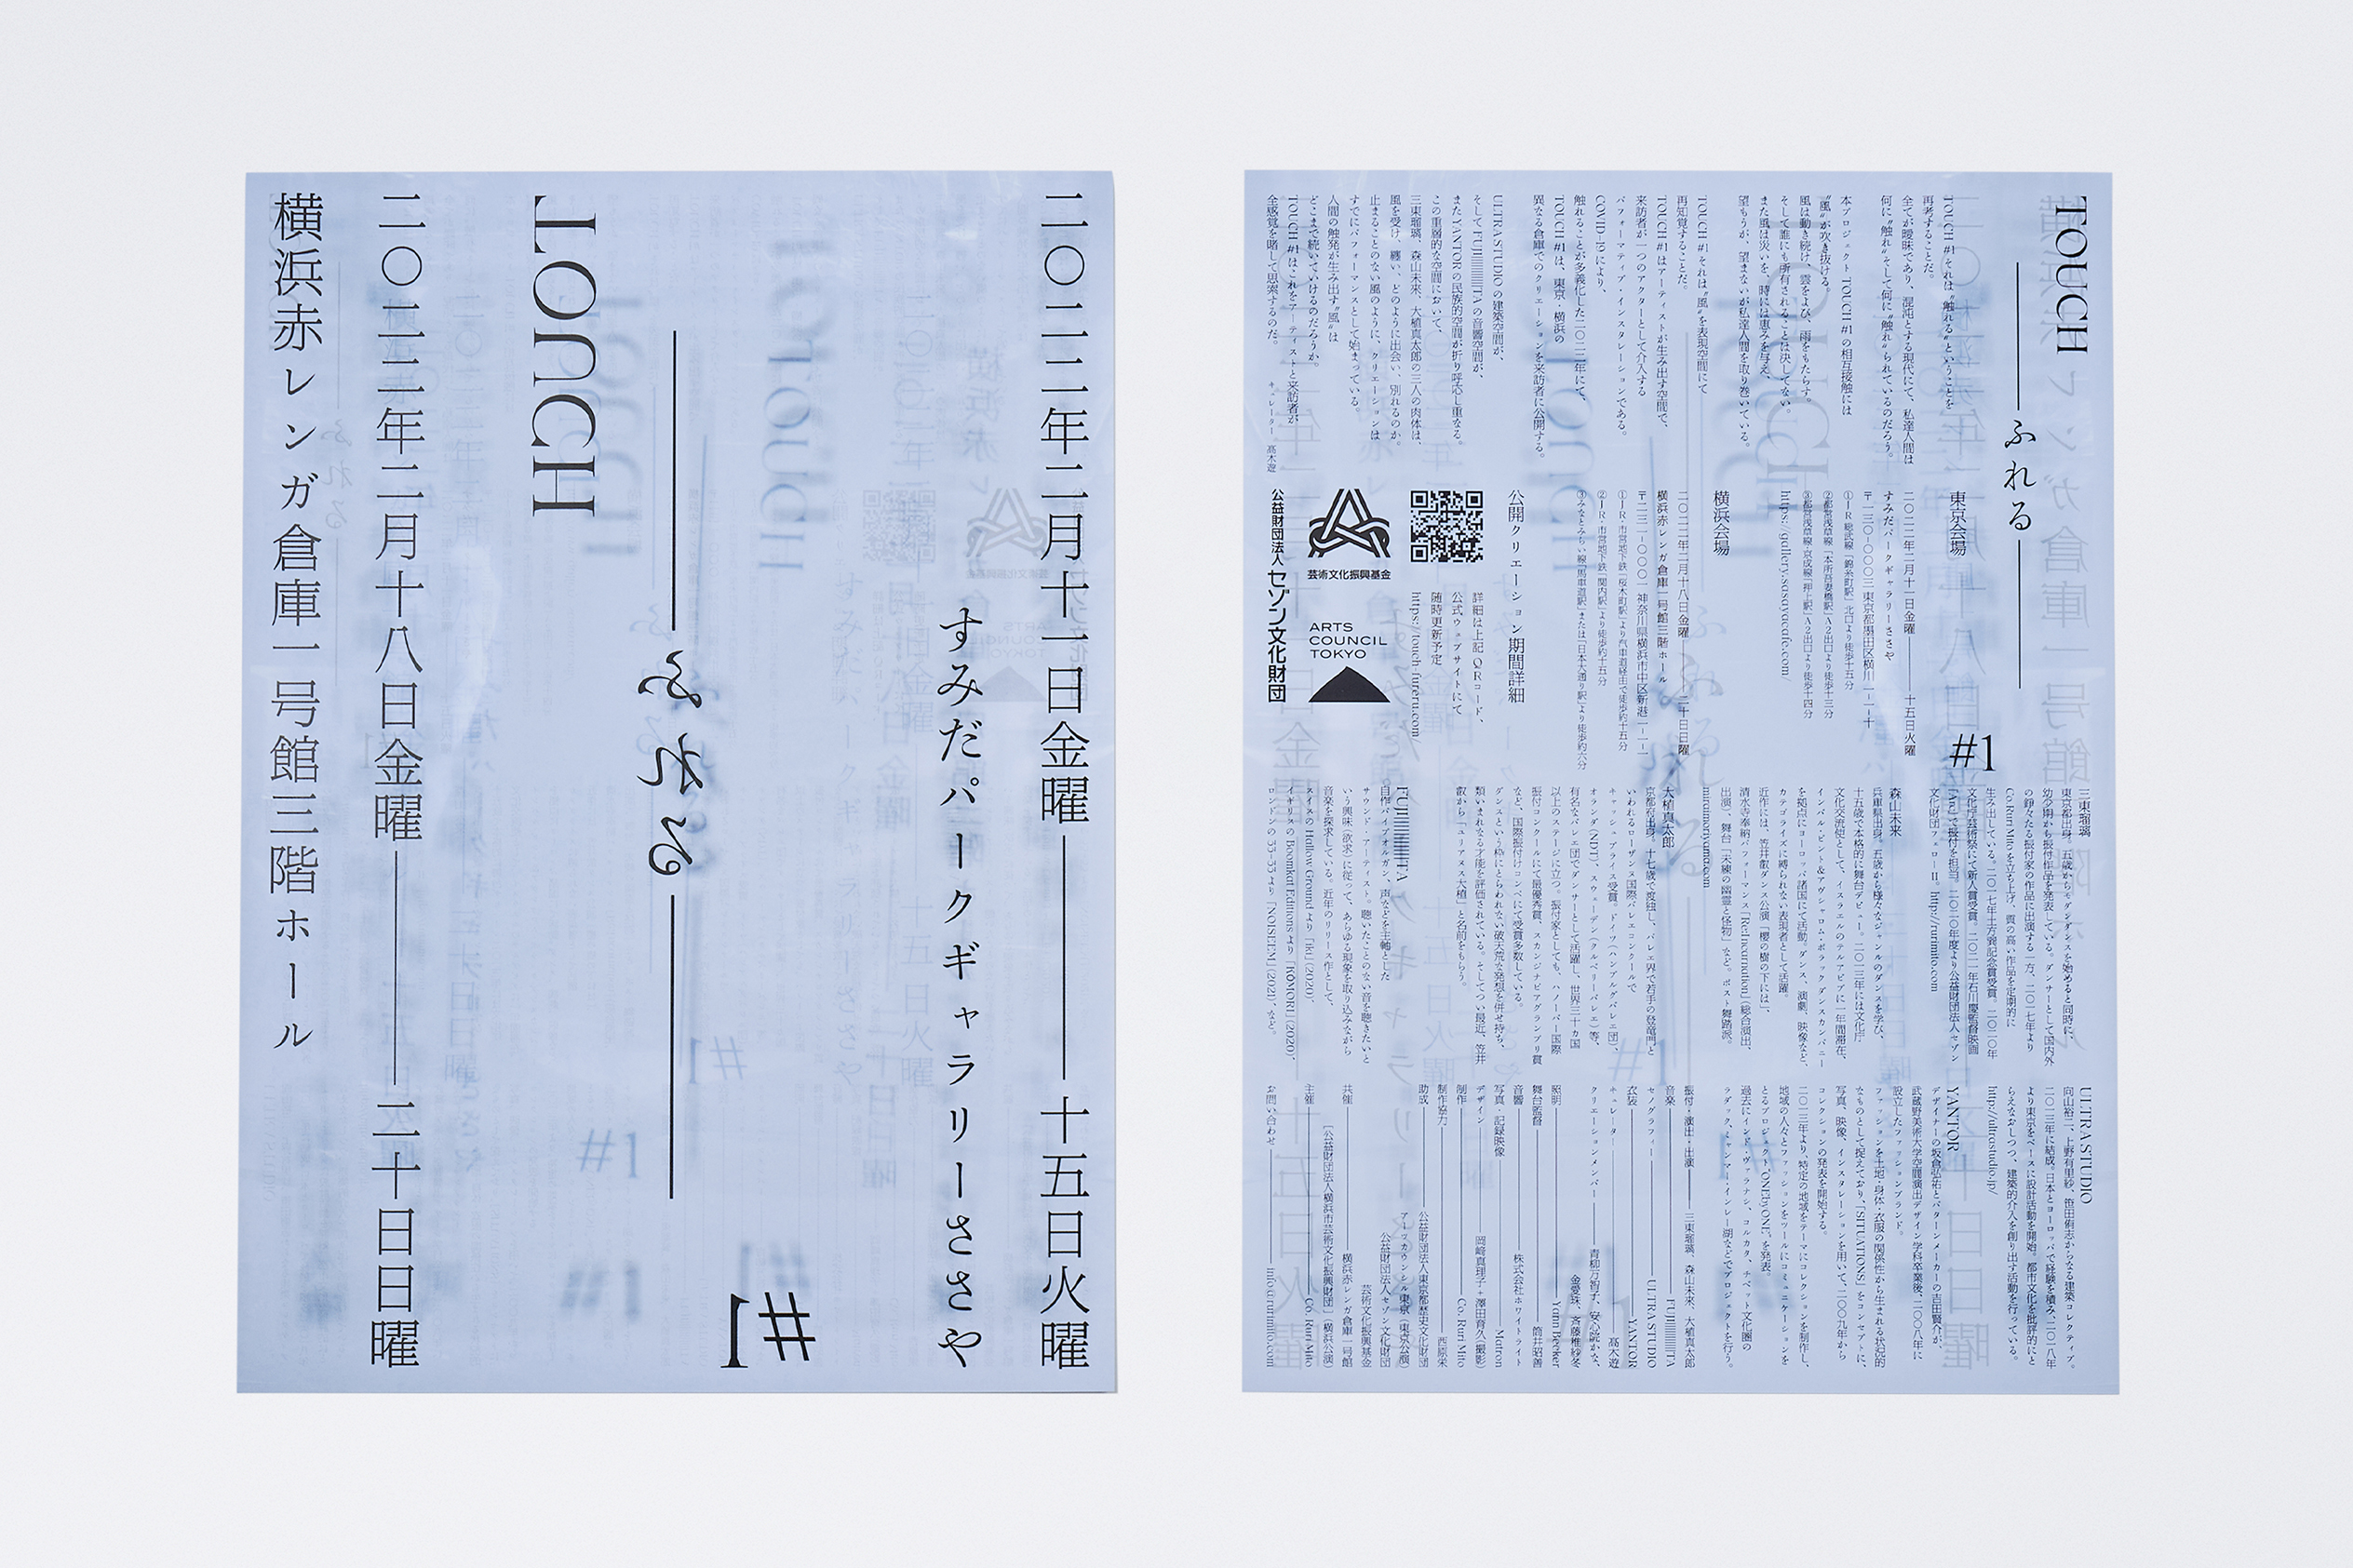 二〇二二年二月十一日金曜――十五日火曜
すみだパークギャラリーささや
#1
――ふれる――
TOUCH
二〇二二年二月十八日金曜――二十日日曜
横浜赤レンガ倉庫一号館三階ホール
TOUCH
――ふれる――
#1
TOUCH #1 それは“触れる”ということを
再考することだ。
全てが曖昧であり、混沌とする現代にて、私達人間は
何に“触れ”そして何に“触れ”られているのだろう。
本プロジェクト TOUCH #1 の相互接触には
“風”が吹き抜ける。
風は動き続け、雲をよび、雨をもたらす。
そして誰にも所有されることは決してない。
また風は災いを、時には恵みを与え、
望もうが、望まないが私達人間を取り巻いている。
TOUCH #1 それは“風”を表現空間にて
再知覚することだ。
TOUCH #1 はアーティストが生み出す空間で、
来訪者が一つのアクターとして介入する
パフォーマティブ・インスタレーションである。
COVID-19 により、
触れることが多義化した二〇二二年にて、
TOUCH #1 は、東京・横浜の
異なる倉庫でのクリエーションを来訪者に公開する。
ULTRA STUDIO の建築空間が、
そして FUJI||||||||||TA の音響空間が、
また YANTOR の民族的空間が折り呼応し重なる。
この重層的な空間において、
三東瑠璃、森山未來、大植真太郎の三人の肉体は、
風を受け、纏い、どのように出会い、別れるのか。
止まることのない風のように、クリエーションは
すでにパフォーマンスとして始まっている。
人間の触発が生み出す“風”は
どこまで続いていけるのだろうか。
TOUCH #1 はこれをアーティストと来訪者が
全感覚を賭して思索するのだ。
キュレーター 髙木遊
東京会場
二〇二二年二月十一日金曜――十五日火曜
すみだパークギャラリーささや
〒一三〇-〇〇〇三 東京都墨田区横川一-一-十
①JR 総武線「錦糸町駅」北口より徒歩十五分
②都営浅草線「本所吾妻橋駅」A2出口より徒歩十三分
③都営浅草線・京成線「押上駅」A2出口より徒歩十四分
https://gallery-sasayacafe.com/
横浜会場
二〇二二年二月十八日金曜――二十日日曜
横浜赤レンガ倉庫一号館三階ホール
〒二三一-〇〇〇一 神奈川県横浜市中区新港一-一-一
①JR・市営地下鉄「桜木町駅」より汽車道経由で徒歩約十五分
②JR・市営地下鉄「関内駅」より徒歩約十五分
③みなとみらい線「馬車道駅」または「日本大通り駅」より徒歩約六分
公開クリエーション期間詳細
詳細は上記QRコード、
公式ウェブサイトにて
随時更新予定
https://touch-fureru.com/
芸術文化振興基金
ARTS
COUNCIL
TOKYO
公益財団法人 セゾン文化財団
三東瑠璃
東京都出身。五歳からモダンダンスを始めると同時に、
幼少期から振付作品を発表している。ダンサーとして国内外
の錚々たる振付家の作品に出演する一方、二〇一七年より
Co. Ruri Mito を立ち上げ、質の高い作品を定期的に
生み出している。二〇一七年土方巽記念賞受賞。二〇二〇年
文化庁芸術祭にて新人賞受賞。二〇二一年石川慶監督映画
『Arc』で振付を担当。二〇二〇年度より公益財団法人セゾン
文化財団フェローⅡ。http://rurimito.com
森山未來
兵庫県出身。五歳から様々なジャンルのダンスを学び、
十五歳で本格的に舞台デビュー。二〇一三年には文化庁
文化交流使として、イスラエルのテルアビブに一年間滞在、
インバル・ピント&アヴシャロム・ポラックダンスカンパニー
を拠点にヨーロッパ諸国にて活動。ダンス、演劇、映像など、
カテゴライズに縛られない表現者として活躍。
近作には、笠井叡ダンス公演「櫻の樹の下には」、
清水寺奉納パフォーマンス「Re:Incarnation」(総合演出、
出演)、舞台「未練の幽霊と怪物」など。ポスト舞踏派。
miraimoriyama.com
大植真太郎
京都府出身。十七歳で渡独し、バレエ界で若手の登竜門と
いわれるローザンヌ国際バレエコンクールで
キャッシュプライス受賞。ドイツ(ハンブルグバレエ団)、
オランダ(NDT)、スウェーデン(クルベリーバレエ)等、
有名なバレエ団でダンサーとして活躍し、世界三十カ国
以上のステージに立つ。振付家としても、ハノーバー国際
振付コンクールにて最優秀賞、スカンジナビアグランプリ賞
など、国際振付けコンペにて受賞多数している。
ダンスという枠にとらわれない破天荒な発想を併せ持ち、
類いまれなる才能を評価されている。そしてつい最近、笠井
叡から「ユリアヌス大植」と名前をもらう。
FUJI||||||||||TA
自作パイプオルガン、声などを主軸とした
サウンド・アーティスト。聴いたことのない音を聴きたいと
いう興味(欲求)に従って、あらゆる現象を取り込みながら
音楽を探求している。近年のリリース作として、
スイスの Hallow Ground より「iki」(2020)、
イギリスの Boomkat Editions より「KŌMORI」(2020)、
ロンドンの 33-33 より「NOISEEM」(2021)、など。
ULTRA STUDIO
向山裕二、上野有里紗、笹田侑志からなる建築コレクティブ。
二〇一三年に結成。日本とヨーロッパで経験を積み、二〇一八年
より東京をベースに設計活動を開始。都市文化を批評的にと
らえなおしつつ、建築的介入を創り出す活動を行っている。
http://ultrastudio.jp/
YANTOR
デザイナーの坂倉弘祐とパターンメーカーの吉田賢介が、
武蔵野美術大学空間演出デザイン学科卒業後、二〇〇八年に
設立したファッションブランド。
ファッションを土地・身体・衣服の関係性から生まれる状況的
なものとして捉えており、「SITUATIONS」をコンセプトに、
写真、映像、インスタレーションを用いて、二〇〇九年から
コレクションの発表を開始する。
二〇一三年より、特定の地域をテーマにコレクションを制作し、
地域の人々とファッションをツールにコミュニケーションを
とるプロジェクト“ONE by ONE”を発表。
過去にインド・ヴァラナシ、コルカタ、チベット文化圏の
ラダック、ミャンマー・インレー湖などでプロジェクトを行う。
振付・演出・出演――三東瑠璃、森山未來、大植真太郎
音楽――FUJI||||||||||TA
セノグラフィー――ULTRA STUDIO
衣装――YANTOR
キュレーター――髙木遊
クリエーションメンバー――青柳万智子、安心院かな、
金愛珠、斉藤稚紗冬
照明――Yann Becker
舞台監督――筒井昭善
音響――株式会社ホワイトライト
写真・記録映像――Mutron
デザイン――岡﨑真理子+澤田育久(撮影)
制作――Co. Ruri Mito
制作協力――西原栄
助成――公益財団法人東京都歴史文化財団
アーツカウンシル東京(東京公演)
公益財団法人セゾン文化財団
芸術文化振興基金
共催――横浜赤レンガ倉庫一号館
[公益財団法人横浜市芸術文化振興財団](横浜公演)
主催――Co. Ruri Mito
お問い合わせ――info@rurimito.com